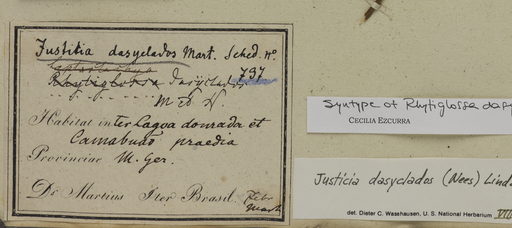 Justitia dasyclados Mart. Sched. nº.
Leptostachya 797
Rhytiglossa Dasyclados
M et N
Habitat inter Lagoa dourada et
Camabuão praedia
Provinciae M. Ger.
Dr. Martius Iter Brasil. Febr
Mart
Syntype of Rhytiglossa dasy
CECILIA EZCURRA
Justicia dasyclados (Nees) Linda
det. Dieter C. Wasshausen, U. S. National Herbarium VIII